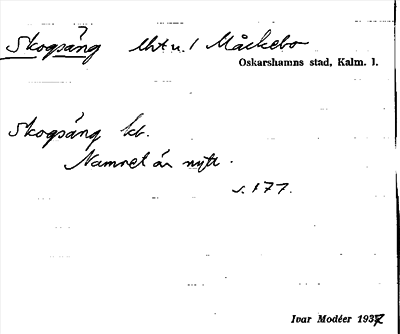 Skogsäng Lht u. 1 Måckebo
Oskarshamns stad, Kalm. l.
Skogsäng lht.
Namnet är nytt.
s. 177.
Ivar Modéer 1937